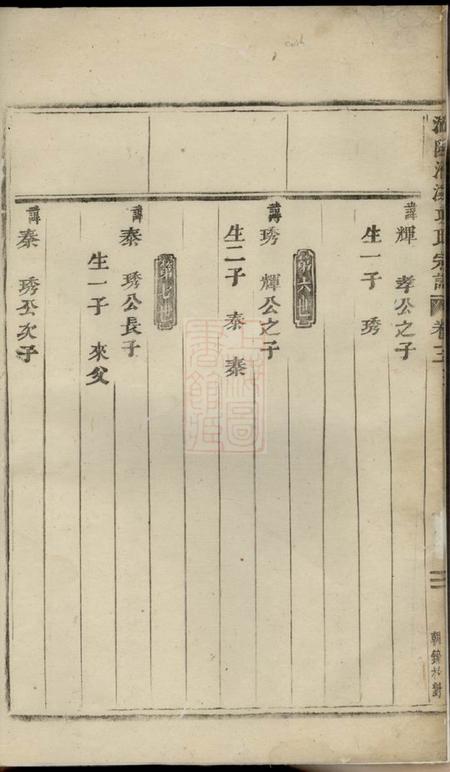 宗譜 卷三
諱輝 孝公之子
生一子 琇
第六世
諱琇 輝公之子
生二子 泰 秦
第七世
諱泰 琇公長子
生一子 來父
諱秦 琇公次子
上海圖書館藏